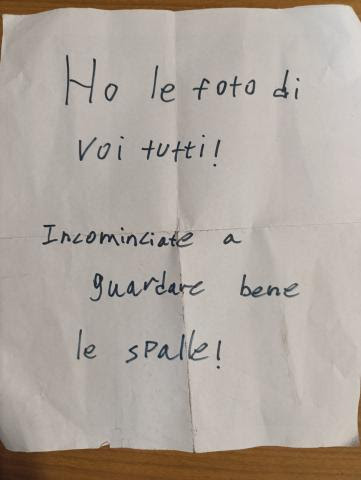 Ho le foto di
Voi tutti!
Incominciate a
guardare bene
le spalle!